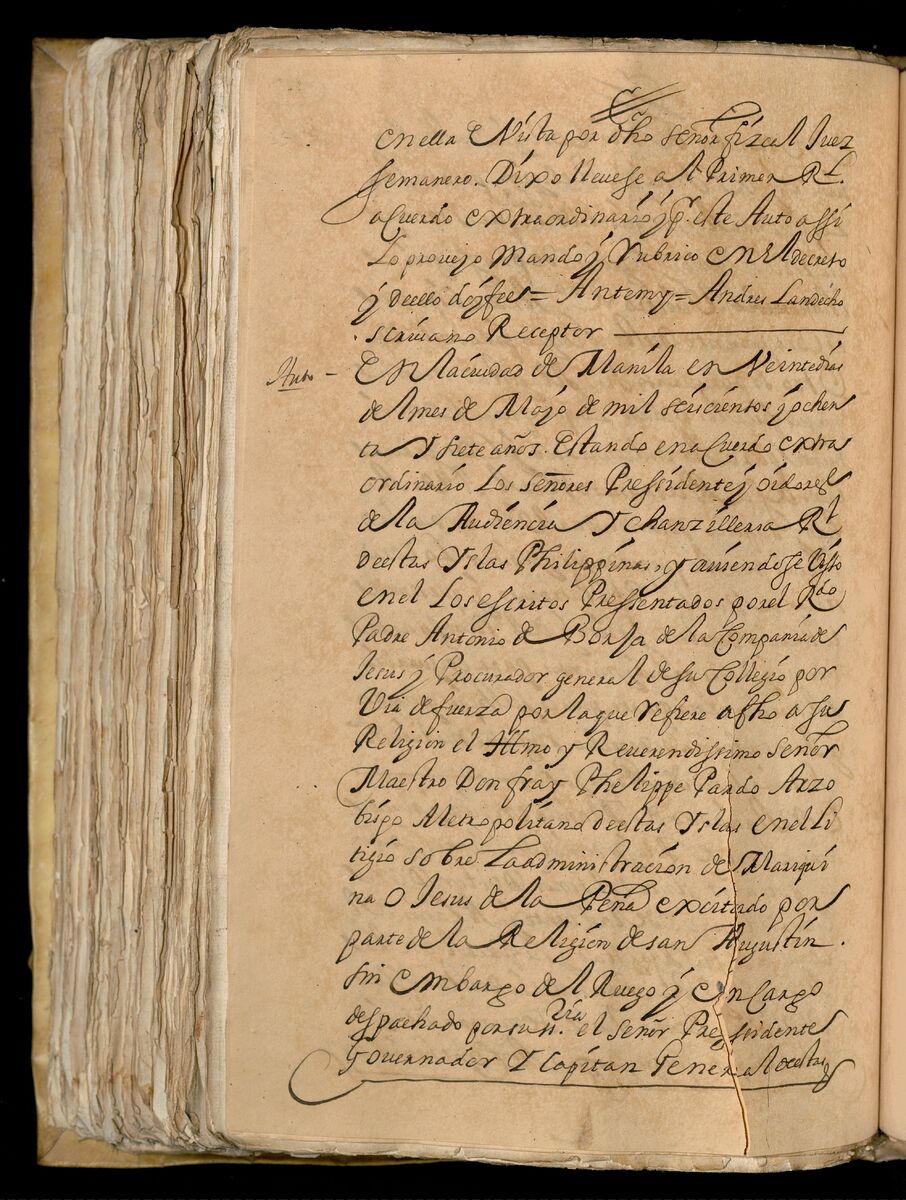 en ella E Vista por dho señor fizcal Juez
semanero. Dixo lleuese al Primer Rl.
aCuerdo extraordinario y pr. este Auto assi
Lo proueyo Mando y Rubrico en El decreto
y de ello doy fee = Antemy = Andres Landecho
scriuano Receptor
Auto - En la ciudad de Manila en Veinte dias
del mes de Mayo de mil seiscientos y ochen
ta Y siete años. Estando en aCuerdo extra
ordinario Los señores Pressidente y oidores
de la Audiencia Y chanzilleria Rl
de estas Yslas Philippinas, y auiendose Visto
en el Los escritos Pressentados por el Rdo
Padre Antonio de Borja de la Compania de
Jesus y Procurador general de su Collegio por
Via de fuerza por la que refiere a fho a su
Religion el Illmo y Reuerendissimo señor
Maestro Don fray Phelippe Pardo Arzo
bispo Metropolitano de estas Yslas en el Li
tigio sobre La administracion de Mariqui
na O Jesus de la Peña excitado por
parte de la Religion de san Augustin.
sin embargo del Ruego y enCargo
despachado por su sria. el señor Pressidente
Gouernador Y Capitan General de estas